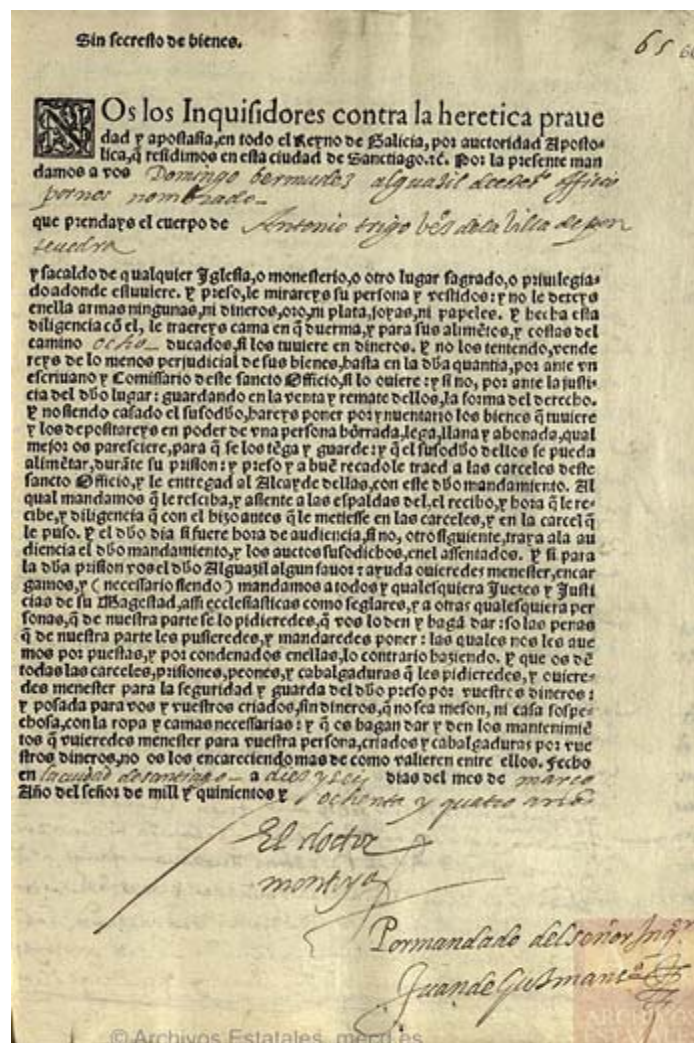 Sin secresto de bienes.
65
NOs los Inquisidores contra la heretica praue
dad y apostasia, en todo el Reyno de Galicia, por auctoridad Aposto-
lica, q̃ residimos en esta ciudad de Sanctiago. ⁊c. Por la presente man
damos a vos Domingo bermudez alguazil deeste sto officio
por nos nombrado
que prendays el cuerpo de Antonio trigo vº de la Villa de pon
tevedra
y sacaldo de qualquier Iglesia, o monesterio, o otro lugar sagrado, o priuilegia-
do adonde estuuiere. Y preso, le mirareys su persona y vestidos: y no le dexeys
en ella armas ningunas, ni dineros, oro, ni plata, joyas, ni papeles. Y hecha esta
diligencia cõ el, le traereys cama en q̃ duerma, y para sus alimẽtos, y costas del
camino ocho ducados, si los tuuiere en dineros. Y no los teniendo, vende
reys de lo menos perjudicial de sus bienes, hasta en la dha quantia, por ante vn
escriuano y Comissario deste sancto Officio, si lo ouiere: y si no, por ante la justi-
cia del dho lugar: guardando en la venta y remate dellos, la forma del derecho.
Y no siendo casado el susodho, hareys poner por ynuentario los bienes q̃ tuuiere
y los depositareys en poder de vna persona hõrrada, lega, llana y abonada, qual
mejor os paresciere, para q̃ se los tẽga y guarde: y q̃ el susodho dellos se pueda
alimẽtar, durãte su prision: y preso y a buẽ recado le traed a las carceles deste
sancto Officio, y le entregad al Alcayde dellas, con este dho mandamiento. Al
qual mandamos q̃ le resciba, y assiente a las espaldas del, el recibo, y hora q̃ le re-
cibe, y diligencia q̃ con el hizo antes q̃ le metiesse en las carceles, y en la carcel q̃
le puso. Y el dho dia si fuere hora de audiencia, si no, otro siguiente, traya a la au
diencia el dho mandamiento, y los auctos susodichos, en el assentados. Y si para
la dha prision vos el dho Alguazil algun fauor y ayuda ouieredes menester, encar
gamos, y (necessario siendo) mandamos a todos y qualesquiera Juezes y Justi
cias de su Magestad, assi ecclesiasticas como seglares, y a otras qualesquiera per
sonas, q̃ de nuestra parte se lo pidieredes, q̃ vos lo den y hagã dar: so las penas
q̃ de nuestra parte les pusieredes, y mandaredes poner: las quales nos les aue
mos por puestas, y por condenados en ellas, lo contrario haziendo. Y que os dẽ
todas las carceles, prisiones, peones, y cabalgaduras q̃ les pidieredes, y ouiere-
des menester para la seguridad y guarda del dho preso por vuestros dineros:
y posada para vos y vuestros criados, sin dineros, q̃ no sea meson, ni casa sospe-
chosa, con la ropa y camas necessarias: y q̃ os hagan dar y den los mantenimiẽ
tos q̃ vuieredes menester para vuestra persona, criados y cabalgaduras por vue
stros dineros, no os los encareciendo mas de como valieren entre ellos. Fecho
en la ciudad de santiago a diez y seis dias del mes de março
Año del señor de mill y quinientos y ochenta y quatro años
El doctor
montoya
Por mandado del señor Inqor
Juan de Gusman
© Archivos Estatales, mecd.es
ARCHIVOS
ESTATALES